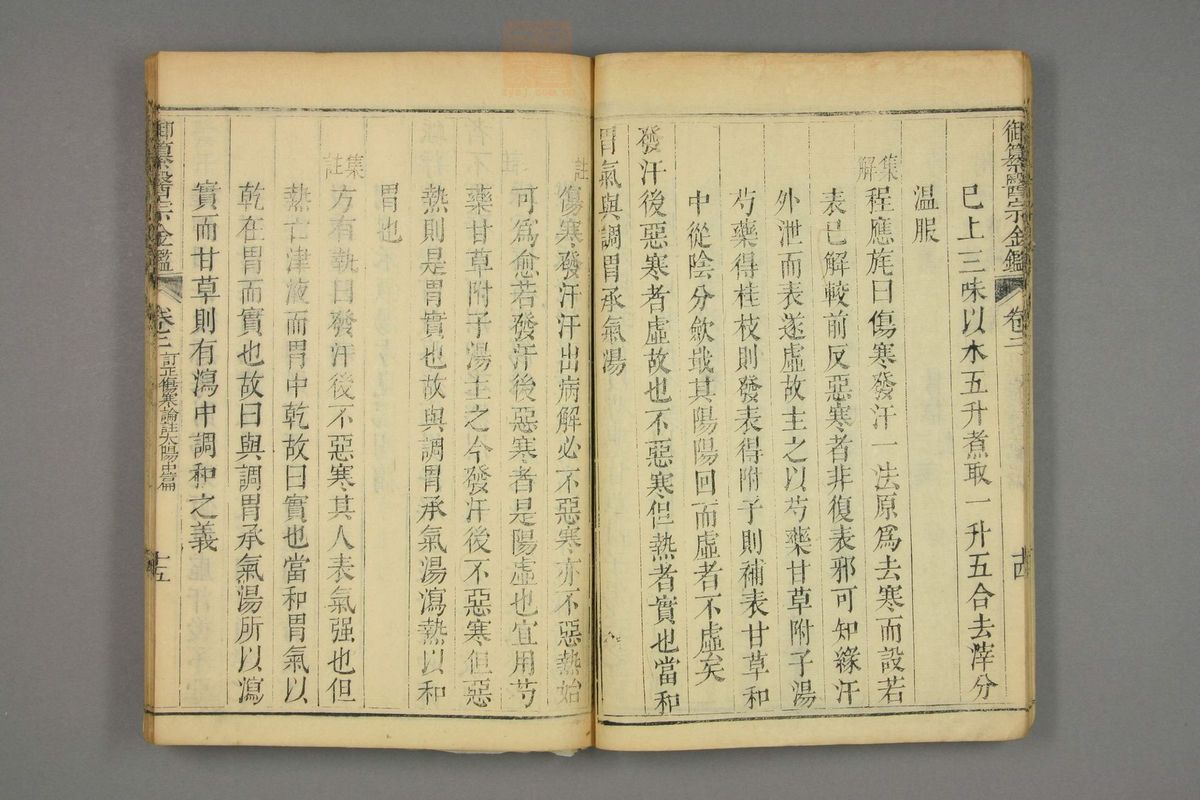 御纂醫宗金鑑 卷三 十四
已上三味以水五升煮取一升五合去滓分
溫服
集解
程應旄曰傷寒發汗一法原爲去寒而設若
表已解較前反惡寒者非復表邪可知緣汗
外泄而表遂虛故主之以芍藥甘草附子湯
芍藥得桂枝則發表得附子則補表甘草和
中從陰分歛戢其陽陽回而虛者不虛矣
發汗後惡寒者虛故也不惡寒但熱者實也當和
胃氣與調胃承氣湯
註
傷寒發汗汗出病解必不惡寒亦不惡熱始
可爲愈若發汗後惡寒者是陽虛也宜用芍
藥甘草附子湯主之今發汗後不惡寒但惡
熱則是胃實也故與調胃承氣湯瀉熱以和
胃也
集註
方有執曰發汗後不惡寒其人表氣强也但
熱亡津液而胃中乾故曰實也當和胃氣以
乾在胃而實也故曰與調胃承氣湯所以瀉
實而甘草則有瀉中調和之義
御纂醫宗金鑑 卷三 訂正傷寒論註太陽中篇 十五